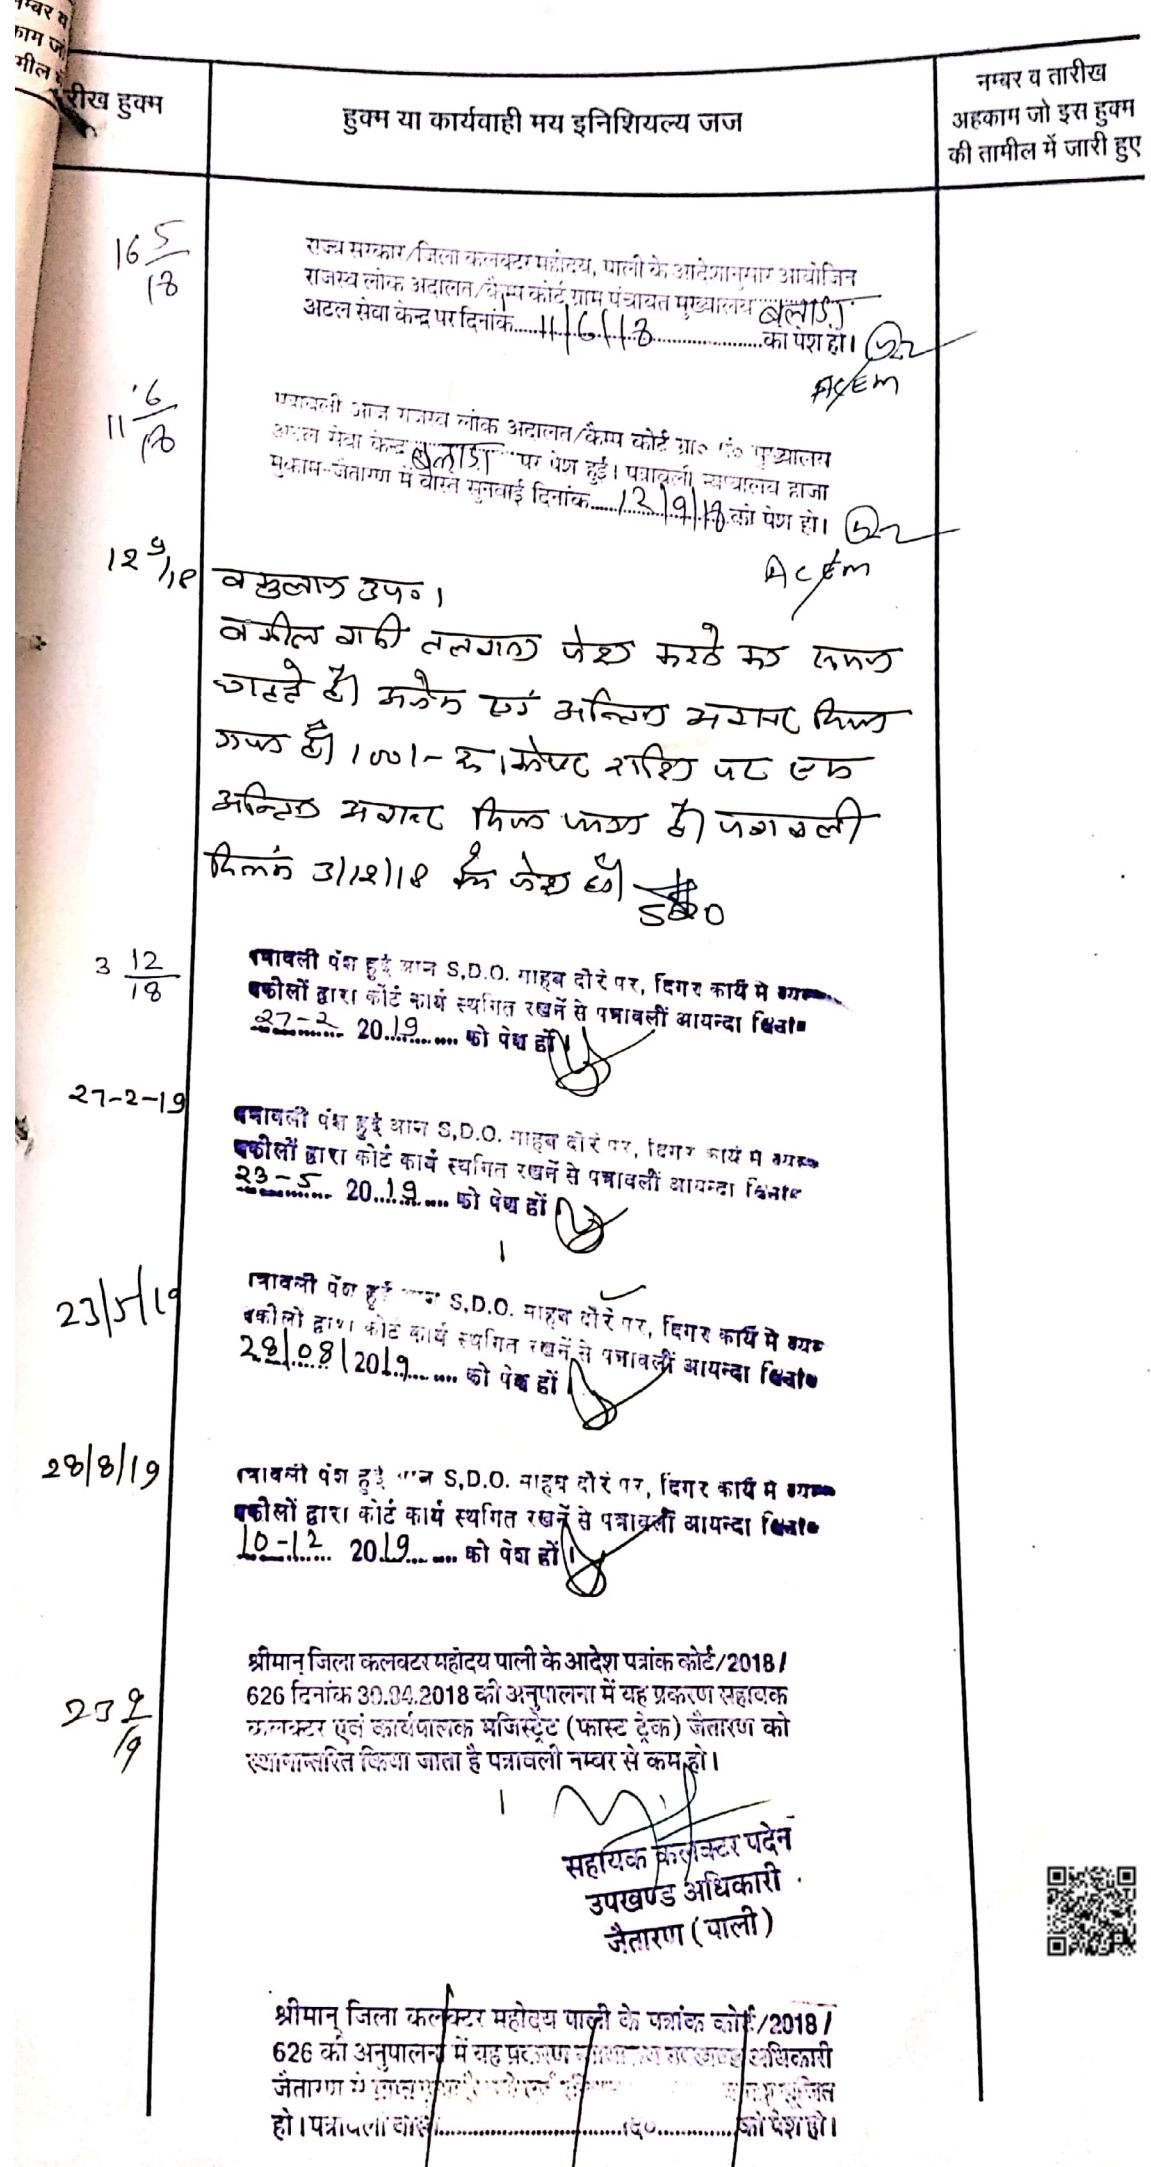 म्बर व
काम जो
मील में
रीख हुक्म
हुक्म या कार्यवाही मय इनिशियल्य जज
नम्बर व तारीख
अहकाम जो इस हुक्म
की तामील में जारी हुए
16 5/18
राज्य सरकार/जिला कलक्टर महोदय, पाली के आदेशानुसार आयोजित
राजस्व लोक अदालत/कैम्प कोर्ट ग्राम पंचायत मुख्यालय बलाड़ा
अटल सेवा केन्द्र पर दिनांक.....11/6/18.....................को पेश हो।
ACEM
11 6/18
पत्रावली आज राजस्व लोक अदालत/कैम्प कोर्ट ग्रा० पं० मुख्यालय
अटल सेवा केन्द्र बलाड़ा पर पेश हुई। पत्रावली न्यायालय हाजा
मुकाम-जैतारण में वास्ते सुनवाई दिनांक.....12/9/18.को पेश हो।
ACEM
12 9/18
वकुलाय उप०।
वकील वादी तलबाना पेश करने का समय
चाहते है। एवं अन्तिम अवसर दिया
है। 100/- रू। पर एक
अन्तिम अवसर दिया जाता है। पत्रावली
दिनांक 3/12/18 को पेश हो।
SDO
3 12/18
पत्रावली पेश हुई आज S.D.O. साहब दौरे पर, दिगर कार्य मे व्यस्त
वकीलों द्वारा कोर्ट कार्य स्थगित रखनें से पत्रावलीं आयन्दा दिनांक
27-2 2019 को पेश हों।
27-2-19
पत्रावली पेश हुई आज S.D.O. साहब दौरे पर, दिगर कार्य मे व्यस्त
वकीलों द्वारा कोर्ट कार्य स्थगित रखनें से पत्रावलीं आयन्दा दिनांक
23-5 2019 को पेश हों।
23/5/19
पत्रावली पेश हुई आज S.D.O. साहब दौरे पर, दिगर कार्य मे व्यस्त
वकीलों द्वारा कोर्ट कार्य स्थगित रखनें से पत्रावलीं आयन्दा दिनांक
28/08/2019 को पेश हों।
28/8/19
पत्रावली पेश हुई आज S.D.O. साहब दौरे पर, दिगर कार्य मे व्यस्त
वकीलों द्वारा कोर्ट कार्य स्थगित रखनें से पत्रावलीं आयन्दा दिनांक
10-12 2019 को पेश हों।
23 9/19
श्रीमान् जिला कलक्टर महोदय पाली के आदेश पत्रांक कोर्ट/2018/
626 दिनांक 30.04.2018 की अनुपालना में यह प्रकरण सहायक
कलक्टर एवं कार्यपालक मजिस्ट्रेट (फास्ट ट्रेक) जैतारण को
स्थानान्तरित किया जाता है पत्रावली नम्बर से कम हो।
सहायक कलक्टर पदेन
उपखण्ड अधिकारी
जैतारण (पाली)
श्रीमान् जिला कलक्टर महोदय पाली के पत्रांक कोर्ट/2018/
626 की अनुपालना में यह प्रकरण न्यायालय उपखण्ड अधिकारी
जैतारण से
हो। पत्रावली वास्ते..............................को पेश हो।